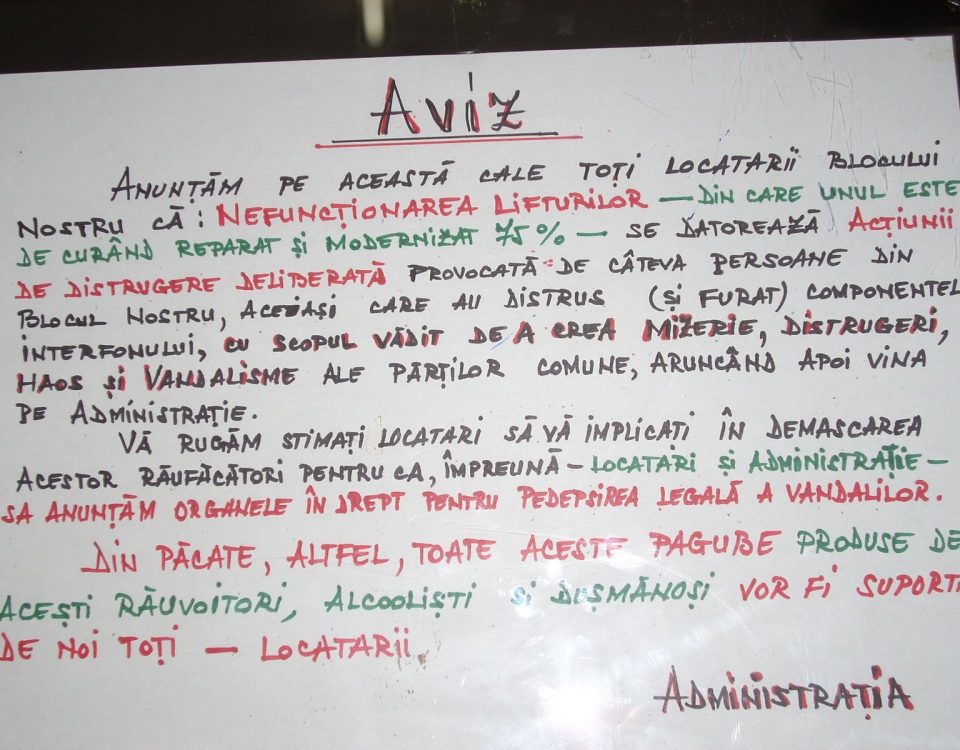 Aviz
ANUNȚĂM PE ACEASTĂ CALE TOȚI LOCATARII BLOCULUI
NOSTRU CĂ: NEFUNCȚIONAREA LIFTURILOR — DIN CARE UNUL ESTE
DE CURÂND REPARAT ȘI MODERNIZAT 75% — SE DATOREAZĂ ACȚIUNII
DE DISTRUGERE DELIBERATĂ PROVOCATĂ DE CÂTEVA PERSOANE DIN
BLOCUL NOSTRU, ACEIAȘI CARE AU DISTRUS (ȘI FURAT) COMPONENTEL
INTERFONULUI, CU SCOPUL VĂDIT DE A CREA MIZERIE, DISTRUGERI,
HAOS ȘI VANDALISME ALE PĂRȚILOR COMUNE, ARUNCÂND APOI VINA
PE ADMINISTRAȚIE.
VĂ RUGĂM STIMAȚI LOCATARI SĂ VĂ IMPLICAȚI ÎN DEMASCAREA
ACESTOR RĂUFĂCĂTORI PENTRU CA, ÎMPREUNĂ – LOCATARI ȘI ADMINISTRAȚIE –
SA ANUNȚĂM ORGANELE ÎN DREPT PENTRU PEDEPSIREA LEGALĂ A VANDALILOR.
DIN PĂCATE, ALTFEL, TOATE ACESTE PAGUBE PRODUSE DE
ACEȘTI RĂUVOITORI, ALCOOLIȘTI SI DUȘMĂNOȘI VOR FI SUPORT
DE NOI TOȚI — LOCATARII
ADMINISTRAȚIA